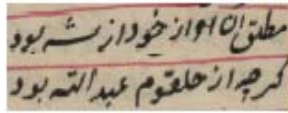 مطلق آن آواز خود از شه بود
کرچه از حلقوم عبدالله بود